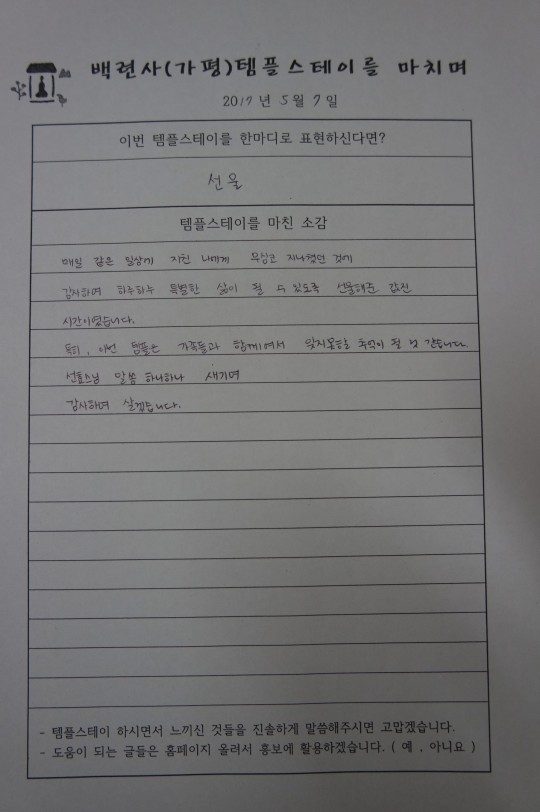 백련사(가평)템플스테이를 마치며
2017년 5월 7일
이번 템플스테이를 한마디로 표현하신다면?
선물
템플스테이를 마친 소감
매일 같은 일상에 지친 나에게 무심코 지나쳤던 것에
감사하며 하루하루 특별한 삶이 될 수 있도록 선물해준 값진
시간이었습니다.
특히, 이번 템플은 가족들과 함께여서 잊지못할 추억이 될 것 같습니다.
스님 말씀 하나하나 새기며
감사하며 살겠습니다.
- 템플스테이 하시면서 느끼신 것들을 진솔하게 말씀해주시면 고맙겠습니다.
- 도움이 되는 글들은 홈페이지 올려서 홍보에 활용하겠습니다. ( 예 , 아니요 )